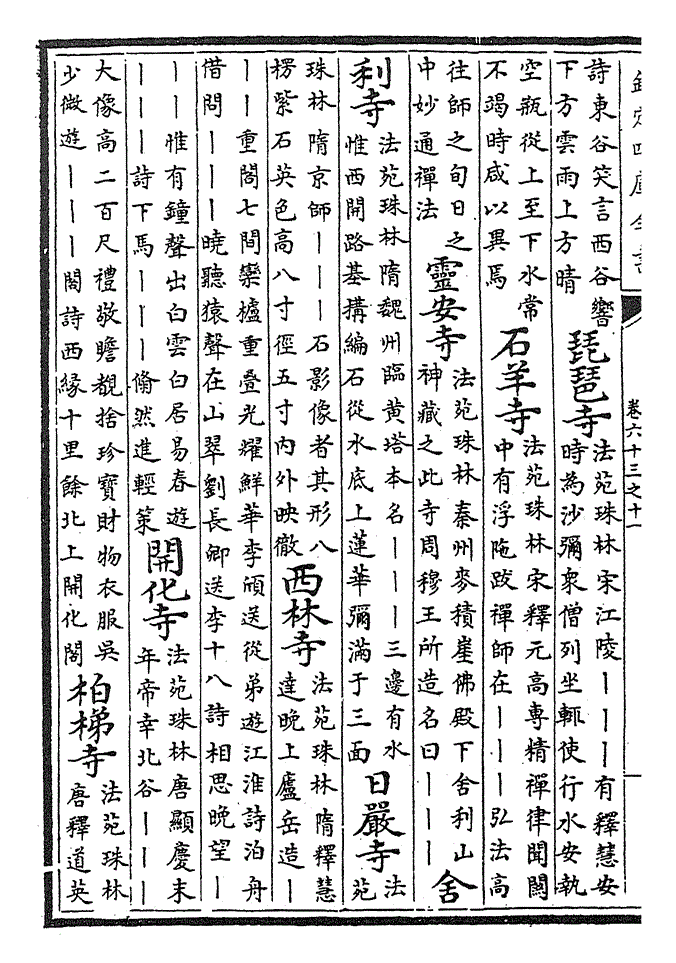 欽定四庫全書
卷六十三之十一
詩東谷笑言西谷響
下方雲雨上方晴
琵琶寺
法苑珠林宋江陵｜｜｜有釋慧安
時為沙彌衆僧列坐輒使行水安執
空瓶從上至下水常
不竭時咸以異焉
石羊寺
法苑珠林宋釋元高專精禪律聞闗
中有浮陁跋禪師在｜｜｜弘法高
往師之旬日之
中妙通禪法
靈安寺
法苑珠林秦州麥積崖佛殿下舍利山
神藏之此寺周穆王所造名曰｜｜｜
舍
利寺
法苑珠林隋魏州臨黃塔本名｜｜｜三邊有水
惟西開路基搆編石從水底上蓮華彌滿于三面
日嚴寺
法
苑
珠林隋京師｜｜｜石影像者其形八
楞紫石英色高八寸徑五寸内外映徹
西林寺
法苑珠林隋釋慧
達晚上廬岳造｜
｜｜重閣七間欒櫨重疊光耀鮮華李頎送從弟遊江淮詩泊舟
借問｜｜｜曉聽猿聲在山翠劉長卿送李十八詩相思晚望｜
｜｜惟有鐘聲出白雲白居易春遊
｜｜｜詩下馬｜｜｜翛然進輕策
開化寺
法苑珠林唐顯慶末
年帝幸北谷｜｜｜
大像高二百尺禮敬瞻覩捨珍寶財物衣服吳
少微遊｜｜｜閣詩西緣十里餘北上開化閣
柏梯寺
法苑珠林
唐釋道英